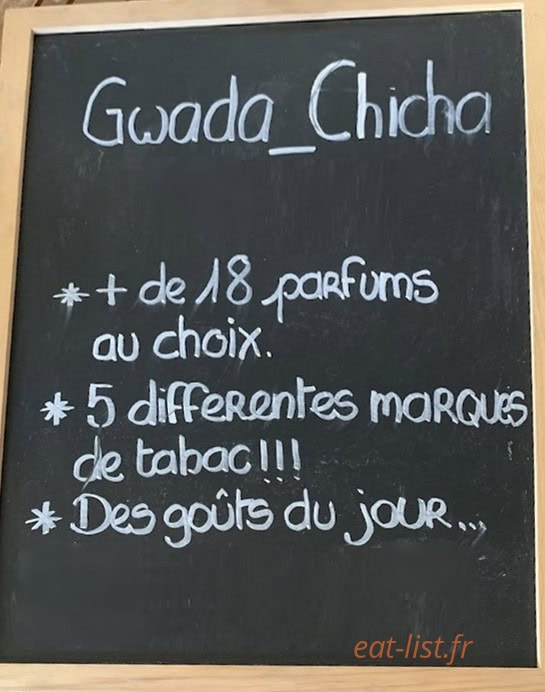 Gwada_Chicha
* + de 18 parfums
au choix.
* 5 differentes marques
de tabac!!!
* Des goûts du jour...
eat-list.fr